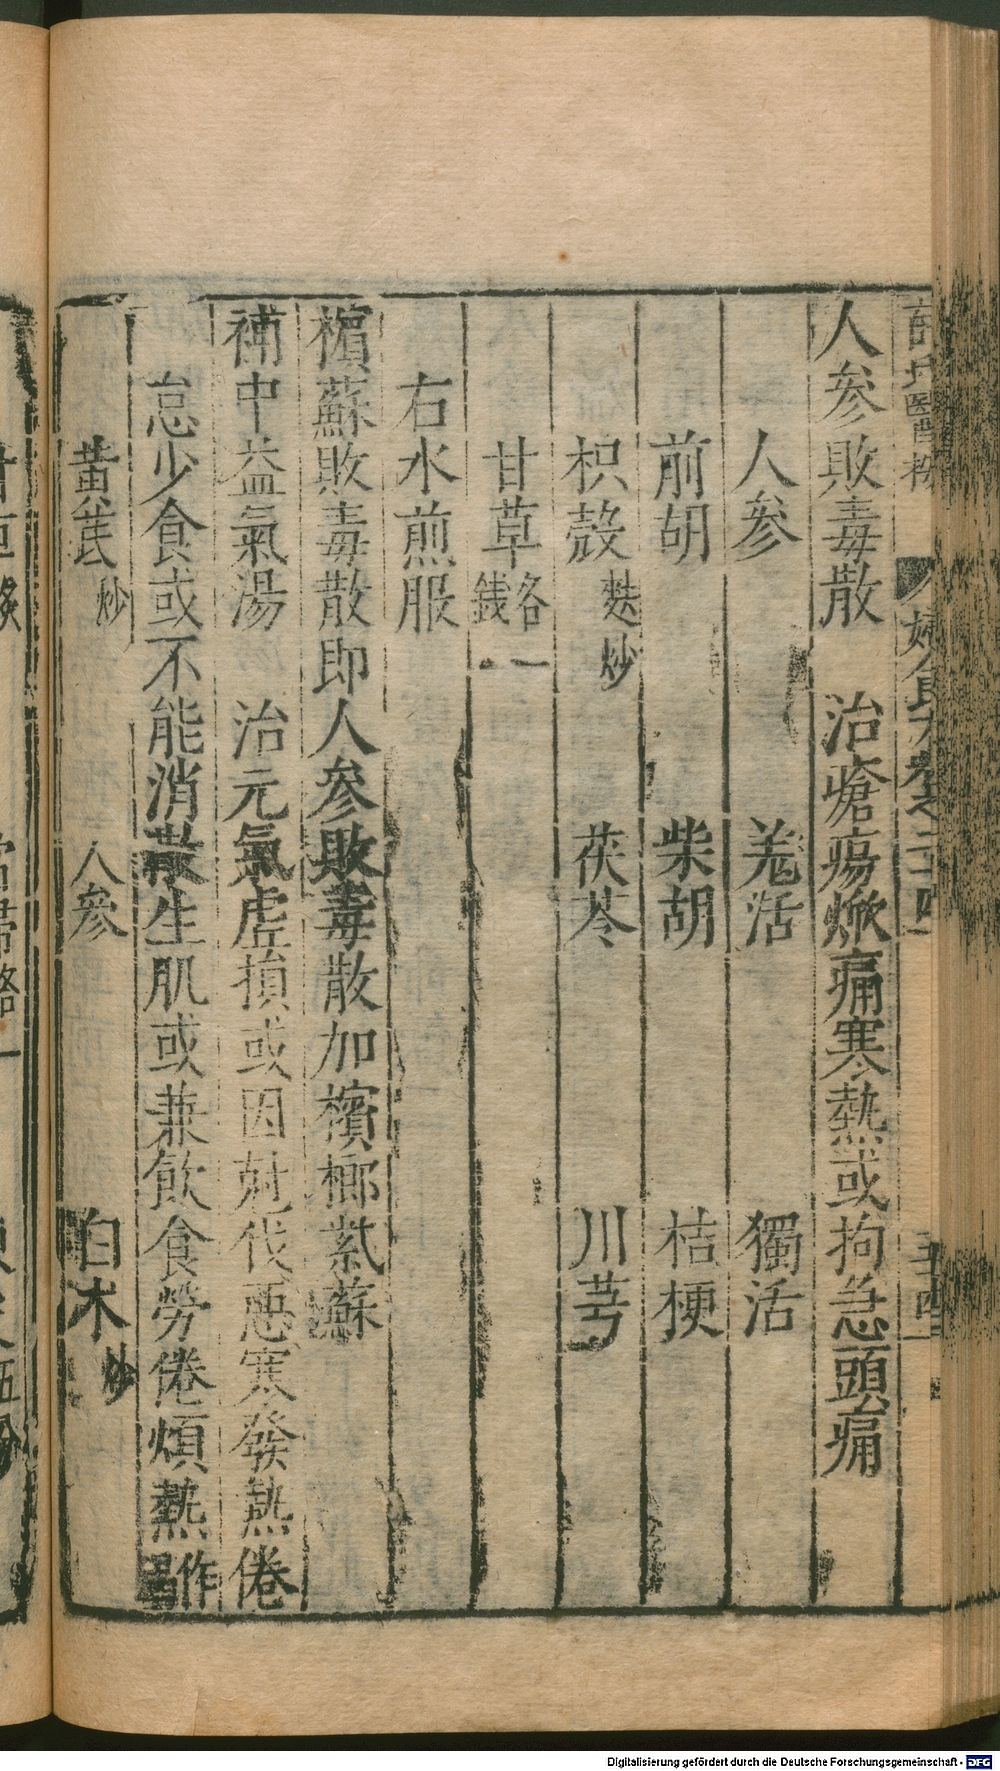 人參敗毒散　治瘡瘍焮痛寒熱或拘急頭痛
人參　羗活　獨活
前胡　柴胡　桔梗
枳殼麩炒　茯苓　川芎
甘草各一錢
右水煎服
檳蘇敗毒散即人參敗毒散加檳榔紫蘇
補中益氣湯　治元氣虛損或因尅伐惡寒發熱倦
怠少食或不能消散生肌或兼飲食勞倦煩熱作
黃芪炒　人參　白朮炒
Digitalisierung gefördert durch die Deutsche Forschungsgemeinschaft - DFG